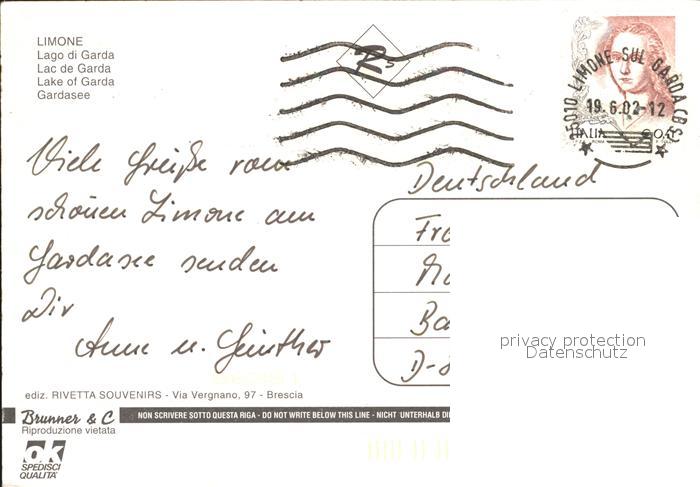 LIMONE
Lago di Garda
Lac de Garda
Lake of Garda
Gardasee
LIMONE SUL GARDA (BS)
19.6.02-12
ITALIA
Viele Grüße vom
schönen Limone am
Gardasee senden
Dir
Anne u. Günther
Deutschland
Fr
Ba
D-
privacy protection
Datenschutz
ediz. RIVETTA SOUVENIRS - Via Vergnano, 97 - Brescia
Brunner & C
NON SCRIVERE SOTTO QUESTA RIGA - DO NOT WRITE BELOW THIS LINE - NICHT UNTERHALB DI
Riproduzione vietata
ok
SPEDISCI
QUALITÀ